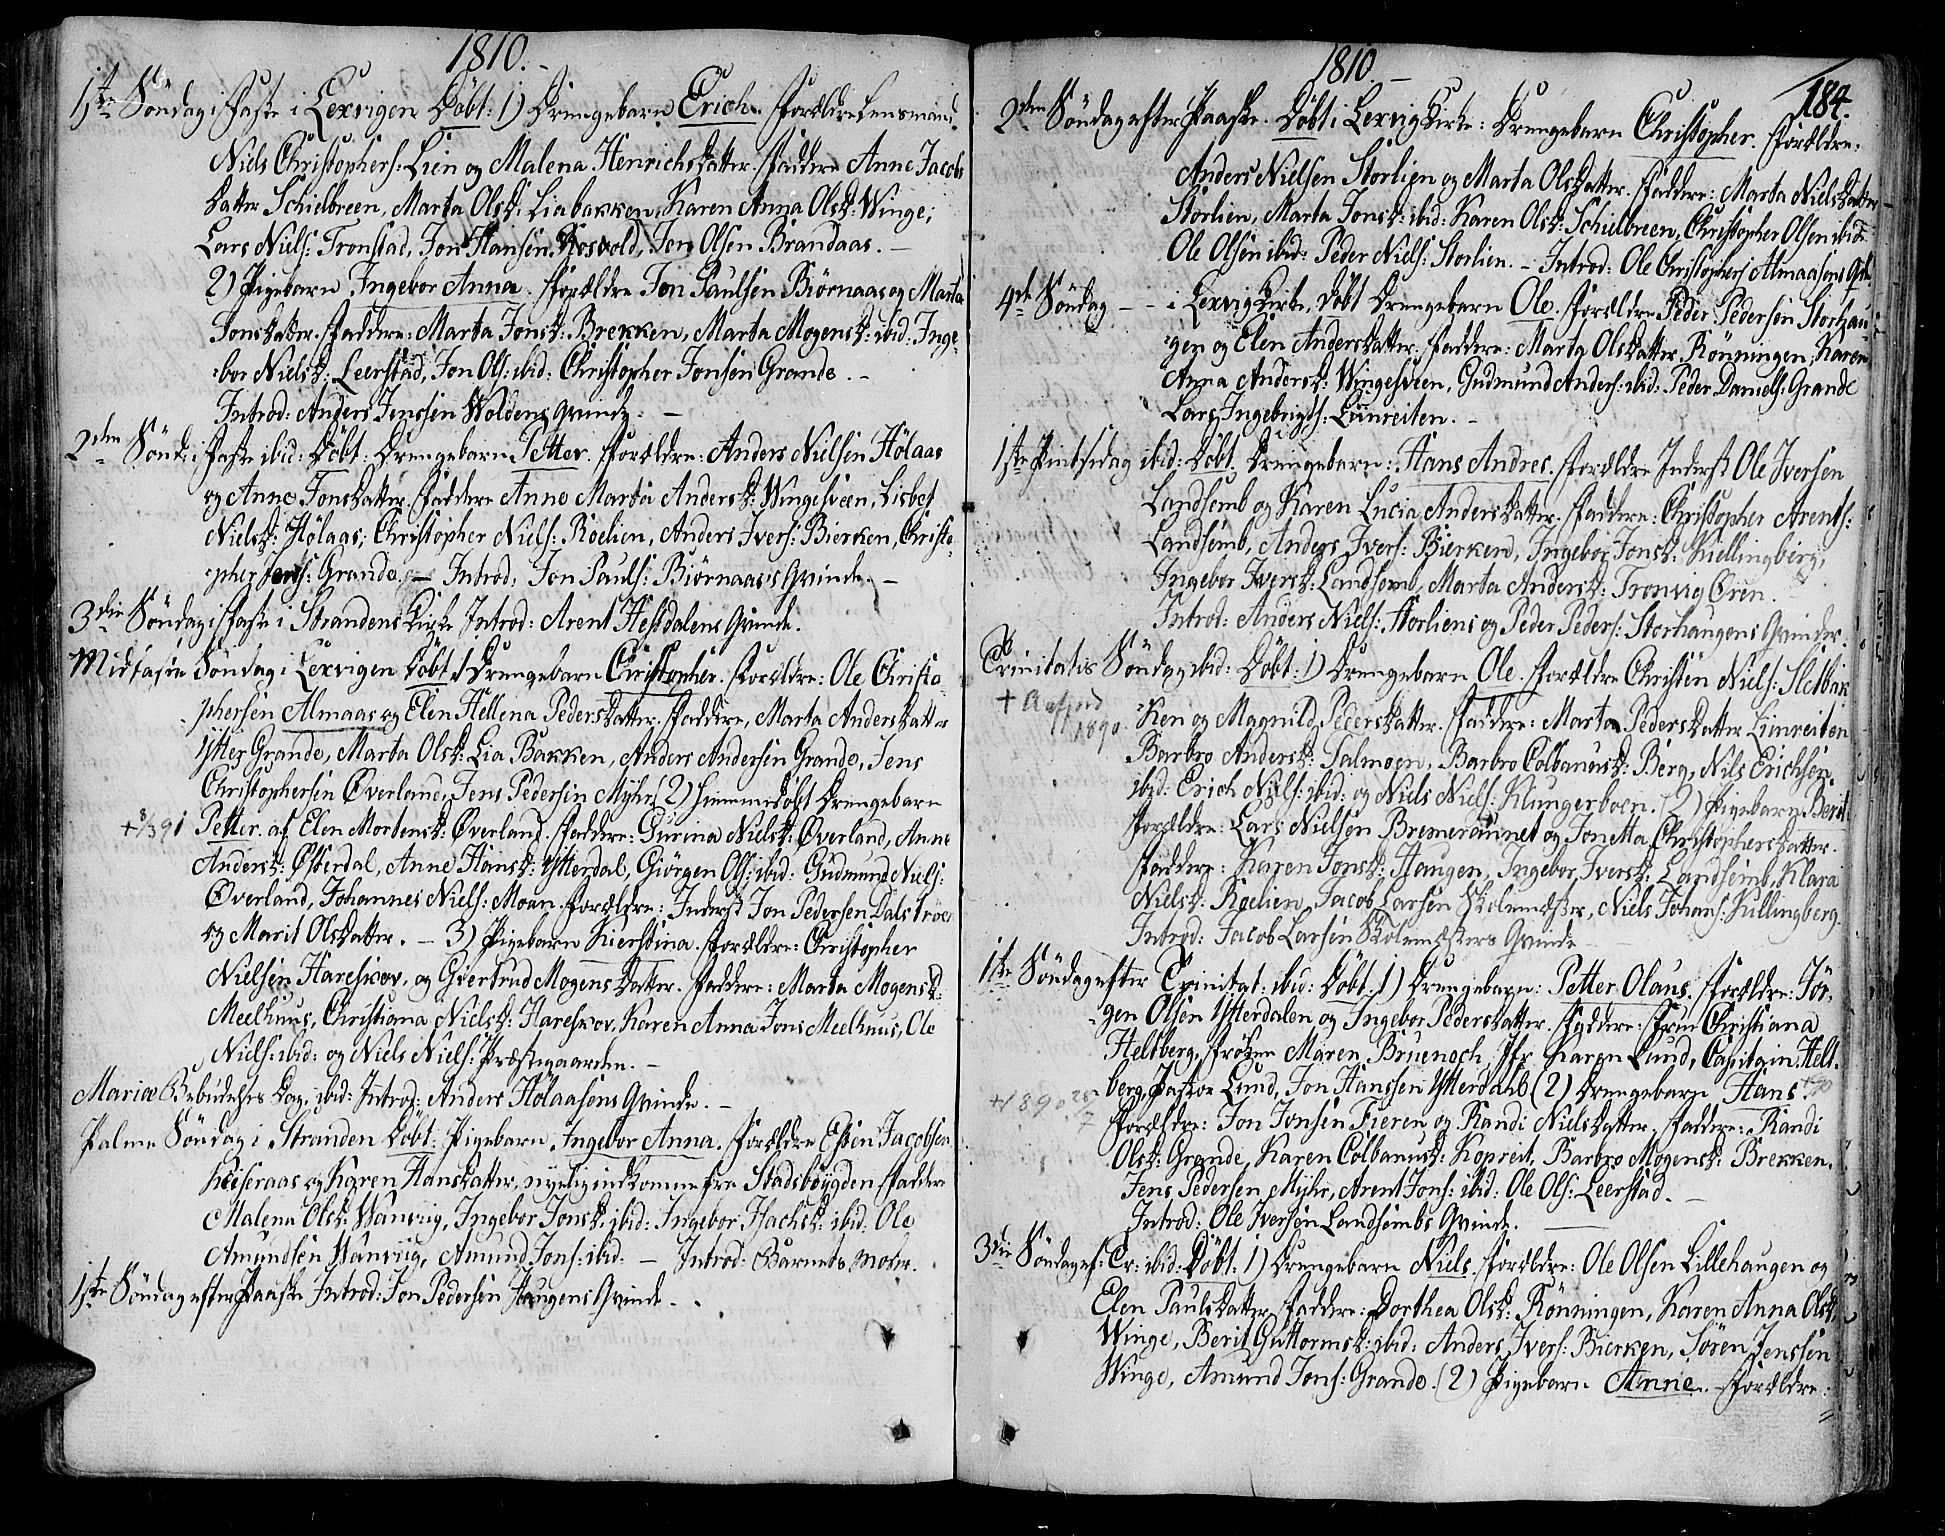 1810.
1ste Söndag i Faste i Lexvigen Döbt: 1) Drengebarn Erich. Forældre Lensmand
Niels Christophers: Lien og Malena Henrichsdatter. Faddere Anne Jacobs
datter Schielbreen, Marta Olsd: Liabakken, Karen Anna Olsd: Winge;
Lars Niels: Tronstad, Jon Hansen Kosvold, Jon Olsen Brandaas. –
2) Pigebarn Ingebor Anna. Forældre Jon Paulsen Biörnaas og Marta
Jonsdatter. Faddere: Marta Jonsd: Brekken, Marta Mogensd: ibid: Inge-
bor Nielsd: Leerstad, Jon Ols: ibid: Christopher Jonsen Grande. –
Introd: Anders Jenssen Woldens Qvinde. –
2den Sönd: i Faste ibid: Döbt: Drengebarn Petter. Forældre: Anders Nielsen Hölaas
og Anne Jonsdatter. Faddere Anne Marta Andersd: Wingesveen, Lisbet
Nielsd: Hölaas, Christopher Niels: Roelien, Anders Ivers: Bierken, Christo-
pher Jons: Grande. – Introd: Jon Pauls: Biörnaas's Qvinde. –
3die Söndag i Faste i Strandens Kirke Introd: Arent Hesdalens Qvinde.
Midfaste Söndag i Lexvigen Döbt 1 Drengebarn Christopher. Forældre: Ole Christo-
phersen Almaas og Elen Hellena Pedersdatter. Faddere, Marta Andersdatter
Ytter Grande, Marta Olsd: Lia Bakken, Anders Andersen Grande, Jens
Christophersen Överland, Jens Pedersen Myhr. (2) Hiemmedöbt Drengebarn
+ 8/3 91 Petter. af Elen Mortensd: Överland. Faddere: Gurina Nielsd: Överland, Anne
Andersd: Österdal, Anne Hansd: Ytterdal, Giörgen Ols: ibid: Gudmund Niels:
Överland, Johannes Niels: Moan. Forældre: Inderst Jon Pedersen Dalströe
og Marit Olsdatter. – 3) Pigebarn Kierstina. Forældre: Christopher
Nielsen Hareskov, og Giertrud Mogensdatter. Faddere: Marta Mogensd:
Meelhuus, Christiana Nielsd: Hareskov, Karen Anna Jons Meelhuus, Ole
Niels: ibid: og Niels Niels: Præstegaarden. –
Mariæ Bebudelses Dag, ibid: Introd: Anders Hölaasens Qvinde. –
Palme Söndag i Stranden Döbt: Pigebarn Ingebor Anna. Forældre Esten Jacobsen
Keiseraas og Karen Hansdatter, nyelig indkomne fra Stadsbøygden. Faddere
Malena Olsd: Wanvig, Ingebor Jonsd: ibid: Ingebor Isachsd: ibid: Ole
Amundsen Wanviig, Amund Jons: ibid: – Introd: Barnets Moder.
1ste Söndag efter Paaske Introd: Jon Pedersen Haugens Qvinde.
1810.
184.
2den Söndag efter Paaske. Döbt i Lexvig Kirke: Drengebarn Christopher. Forældre:
Anders Nielsen Storlien og Marta Olsdatter. Faddere: Marta Nielsdatter
Storlien, Marta Jonsd: ibid: Karen Olsd: Schielbreen, Christopher Olsen ibid:
Ole Olsen ibid: Peder Niels: Storlien. – Introd: Ole Christophers Almaasens Qv:
4de Söndag – – i Lexvig Kirke, döbt Drengebarn Ole. Forældre Peder Pedersen Storhau-
gen og Elen Andersdatter. Faddere: Marta Olsdatter Rönningen, Karen
Anna Andersd: Wingesveen, Gudmund Anders: ibid: Peder Daniels: Grande
Lars Ingebrigts: Linreiten. –
1ste Pintsedag ibid: Döbt. Drengebarn: Hans Andres. Forældre Inderst Ole Iversen
Landsemb og Karen Lucia Andersdatter. Faddere: Christopher Arents:
Landsemb, Anders Ivers: Bierken, Ingebor Jonsd: Killingberg,
Ingebor Iversd: Landsem, Marta Andersd: Tronvig Ören.
Introd: Anders Niels: Storliens og Peder Peders: Storhaugens Qvinder.
Trinitatis Söndag ibid: Döbt: 1) Drengebarn Ole. Forældre Christen Niels: Sletbak-
+ 1890. ken og Magnild Pedersdatter. Faddere: Marta Pedersdatter Linreiten
Barbro Andersd: Talmoen, Barbro Colbanusd: Berg, Nils Erichsen
ibid: Erich Niels: ibid: og Niels Niels: Klungerboen. (2) Pigebarn Berit
Forældre: Lars Nielsen Bremeraunet og Jonetta Christophersdatter.
Faddere: Karen Jonsd: Haugen, Ingebor Iversd: Landsemb, Klara
Nielsd: Roelien, Jacob Larsen Skolemester, Niels Johans: Killingberg.
Introd: Jacob Larsen Skolemesters Qvinde
1ste Söndag efter Trinitat: ibid: Döbt. 1) Drengebarn: Petter Olaus. Forældre: Jör-
gen Olsen Ytterdalen og Ingebor Pedersdatter. Faddere: Frue Christiana
Heltberg, Fröken Maren Bruenoch, Jfr Karen Lund, Capitain Helt-
+ 1890 28/7 berg, Pastor Lund, Jon Hanssen Ytterdahl (2) Drengebarn Hans.
Forældre: Jon Jonsen Fieren og Randi Nielsdatter. Faddere: Randi
Olsd: Grande, Karen Colbanusd: Kopreit, Barbro Mogensd: Brekken,
Jens Pedersen Myhr, Arent Jons: ibid: Ole Ols: Leerstad. –
Introd: Ole Iversen Landsembs Qvinde.
3die Söndag ef: Tr: ibid: Döbt: 1) Drengebarn Niels. Forældre: Ole Olsen Lillehaugen og
Elen Paulsdatter. Faddere: Dorthea Olsd: Rönningen, Karen Anna Olsd:
Winge, Berit Guttormsd: ibid: Anders Ivers: Bierken, Sören Jenssen
Winge, Amund Jons: Grande. (2) Pigebarn Anne. Forældre: